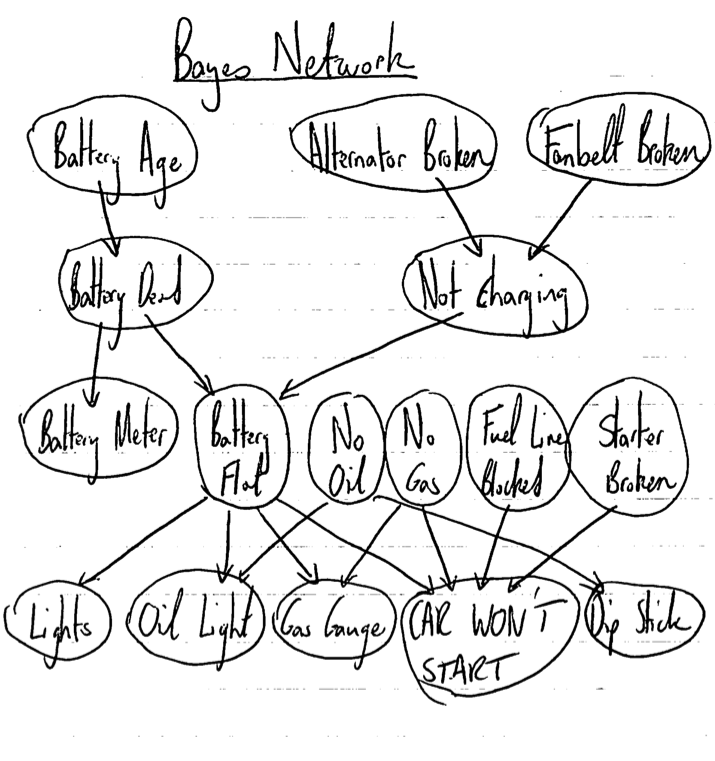 Bayes Network
Battery Age
Alternator Broken
Fanbelt Broken
Battery Dead
Not Charging
Battery Meter
Battery
Flat
No
Oil
No
Gas
Fuel Line
Blocked
Starter
Broken
Lights
Oil Light
Gas Gauge
CAR WON'T
START
Dip Stick